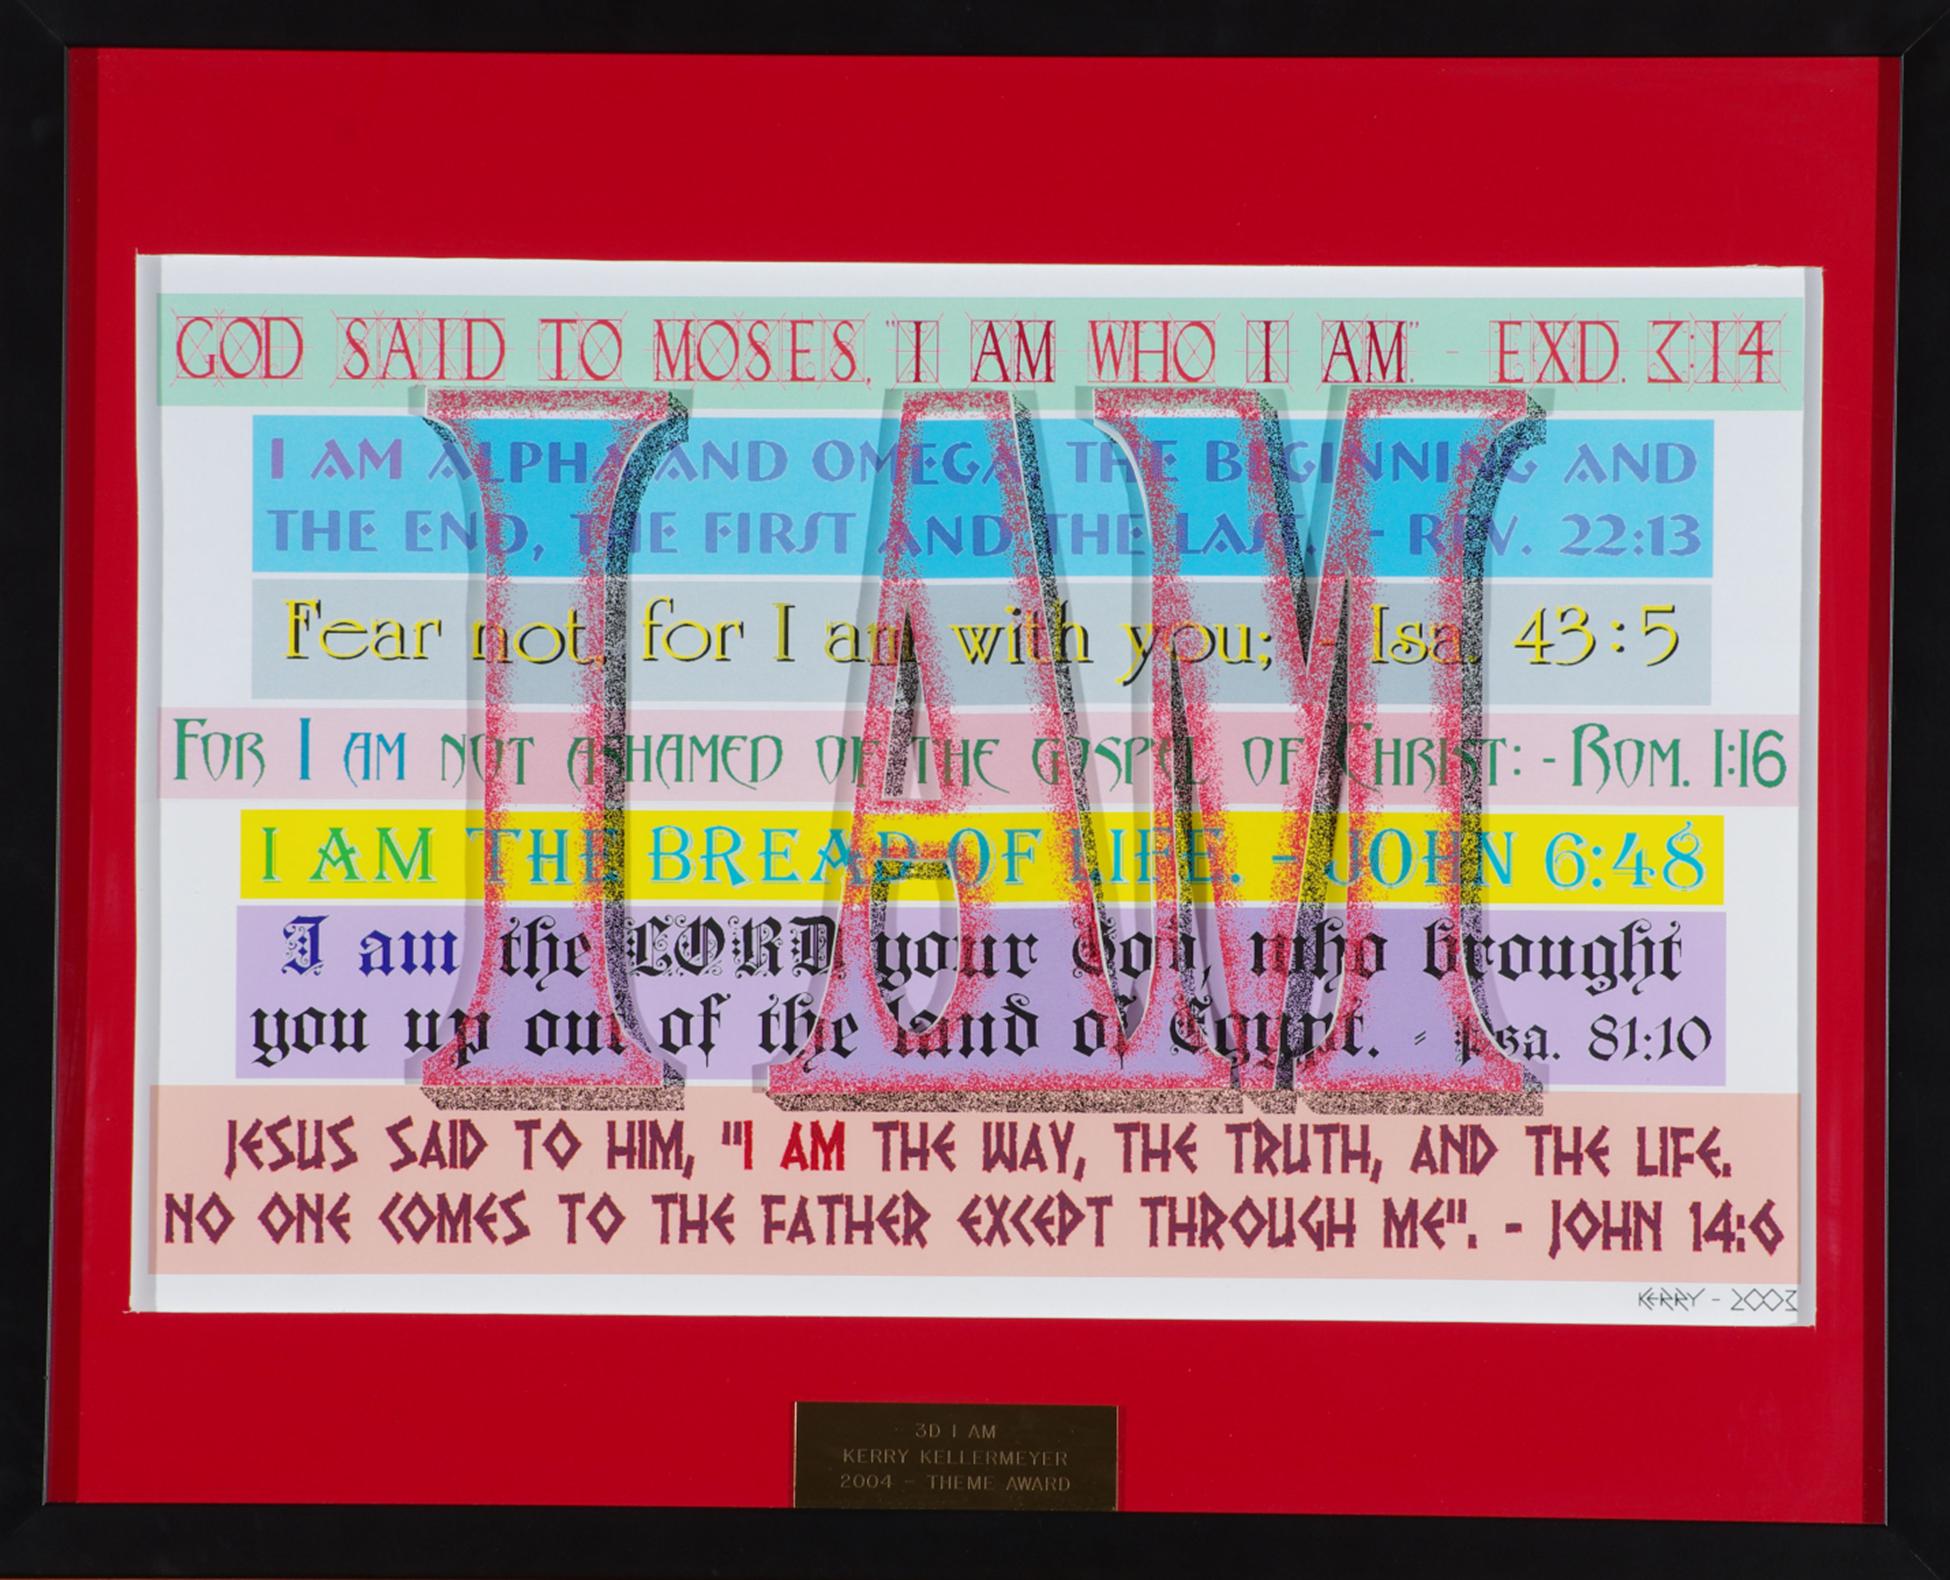 GOD SAID TO MOSES, "I AM WHO I AM." - EXD. 3:14
I AM ALPHA AND OMEGA, THE BEGINNING AND
THE END, THE FIRST AND THE LAST. - REV. 22:13
Fear not, for I am with you; - Isa. 43:5
FOR I AM NOT ASHAMED OF THE GOSPEL OF CHRIST: - ROM. 1:16
I AM THE BREAD OF LIFE. - JOHN 6:48
I am the LORD your God, who brought
you up out of the land of Egypt. - Psa. 81:10
I AM
JESUS SAID TO HIM, "I AM THE WAY, THE TRUTH, AND THE LIFE.
NO ONE COMES TO THE FATHER EXCEPT THROUGH ME". - JOHN 14:6
KERRY - 2003
3D I AM
KERRY KELLERMEYER
2004 - THEME AWARD